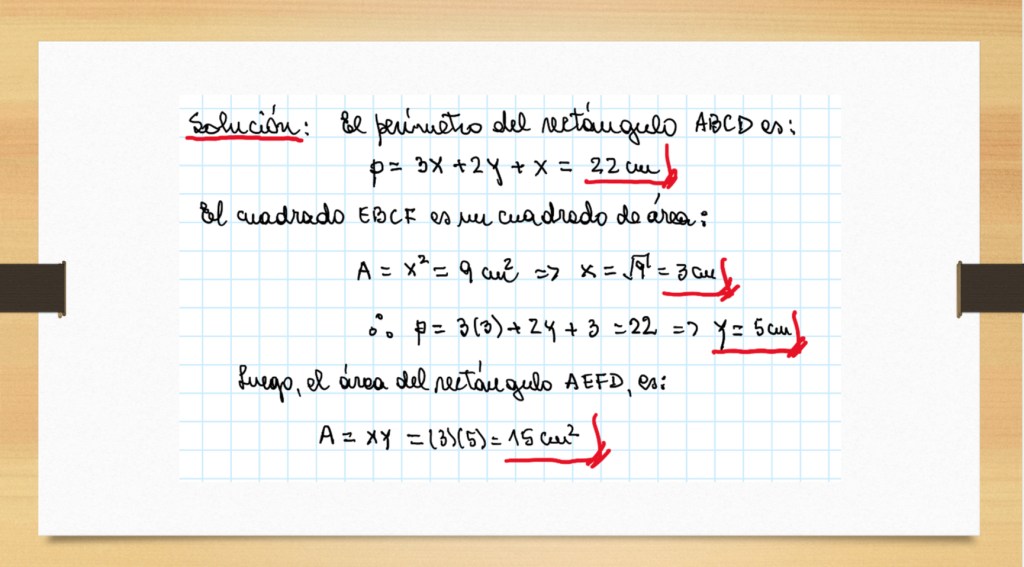 Solución: El perímetro del rectángulo ABCD es:
p = 3x + 2y + x = 22 cm
El cuadrado EBCF es un cuadrado de área:
A = x² = 9 cm² => x = √9 = 3 cm
∴ p = 3(3) + 2y + 3 = 22 => y = 5 cm
Luego, el área del rectángulo AEFD, es:
A = xy = (3)(5) = 15 cm²